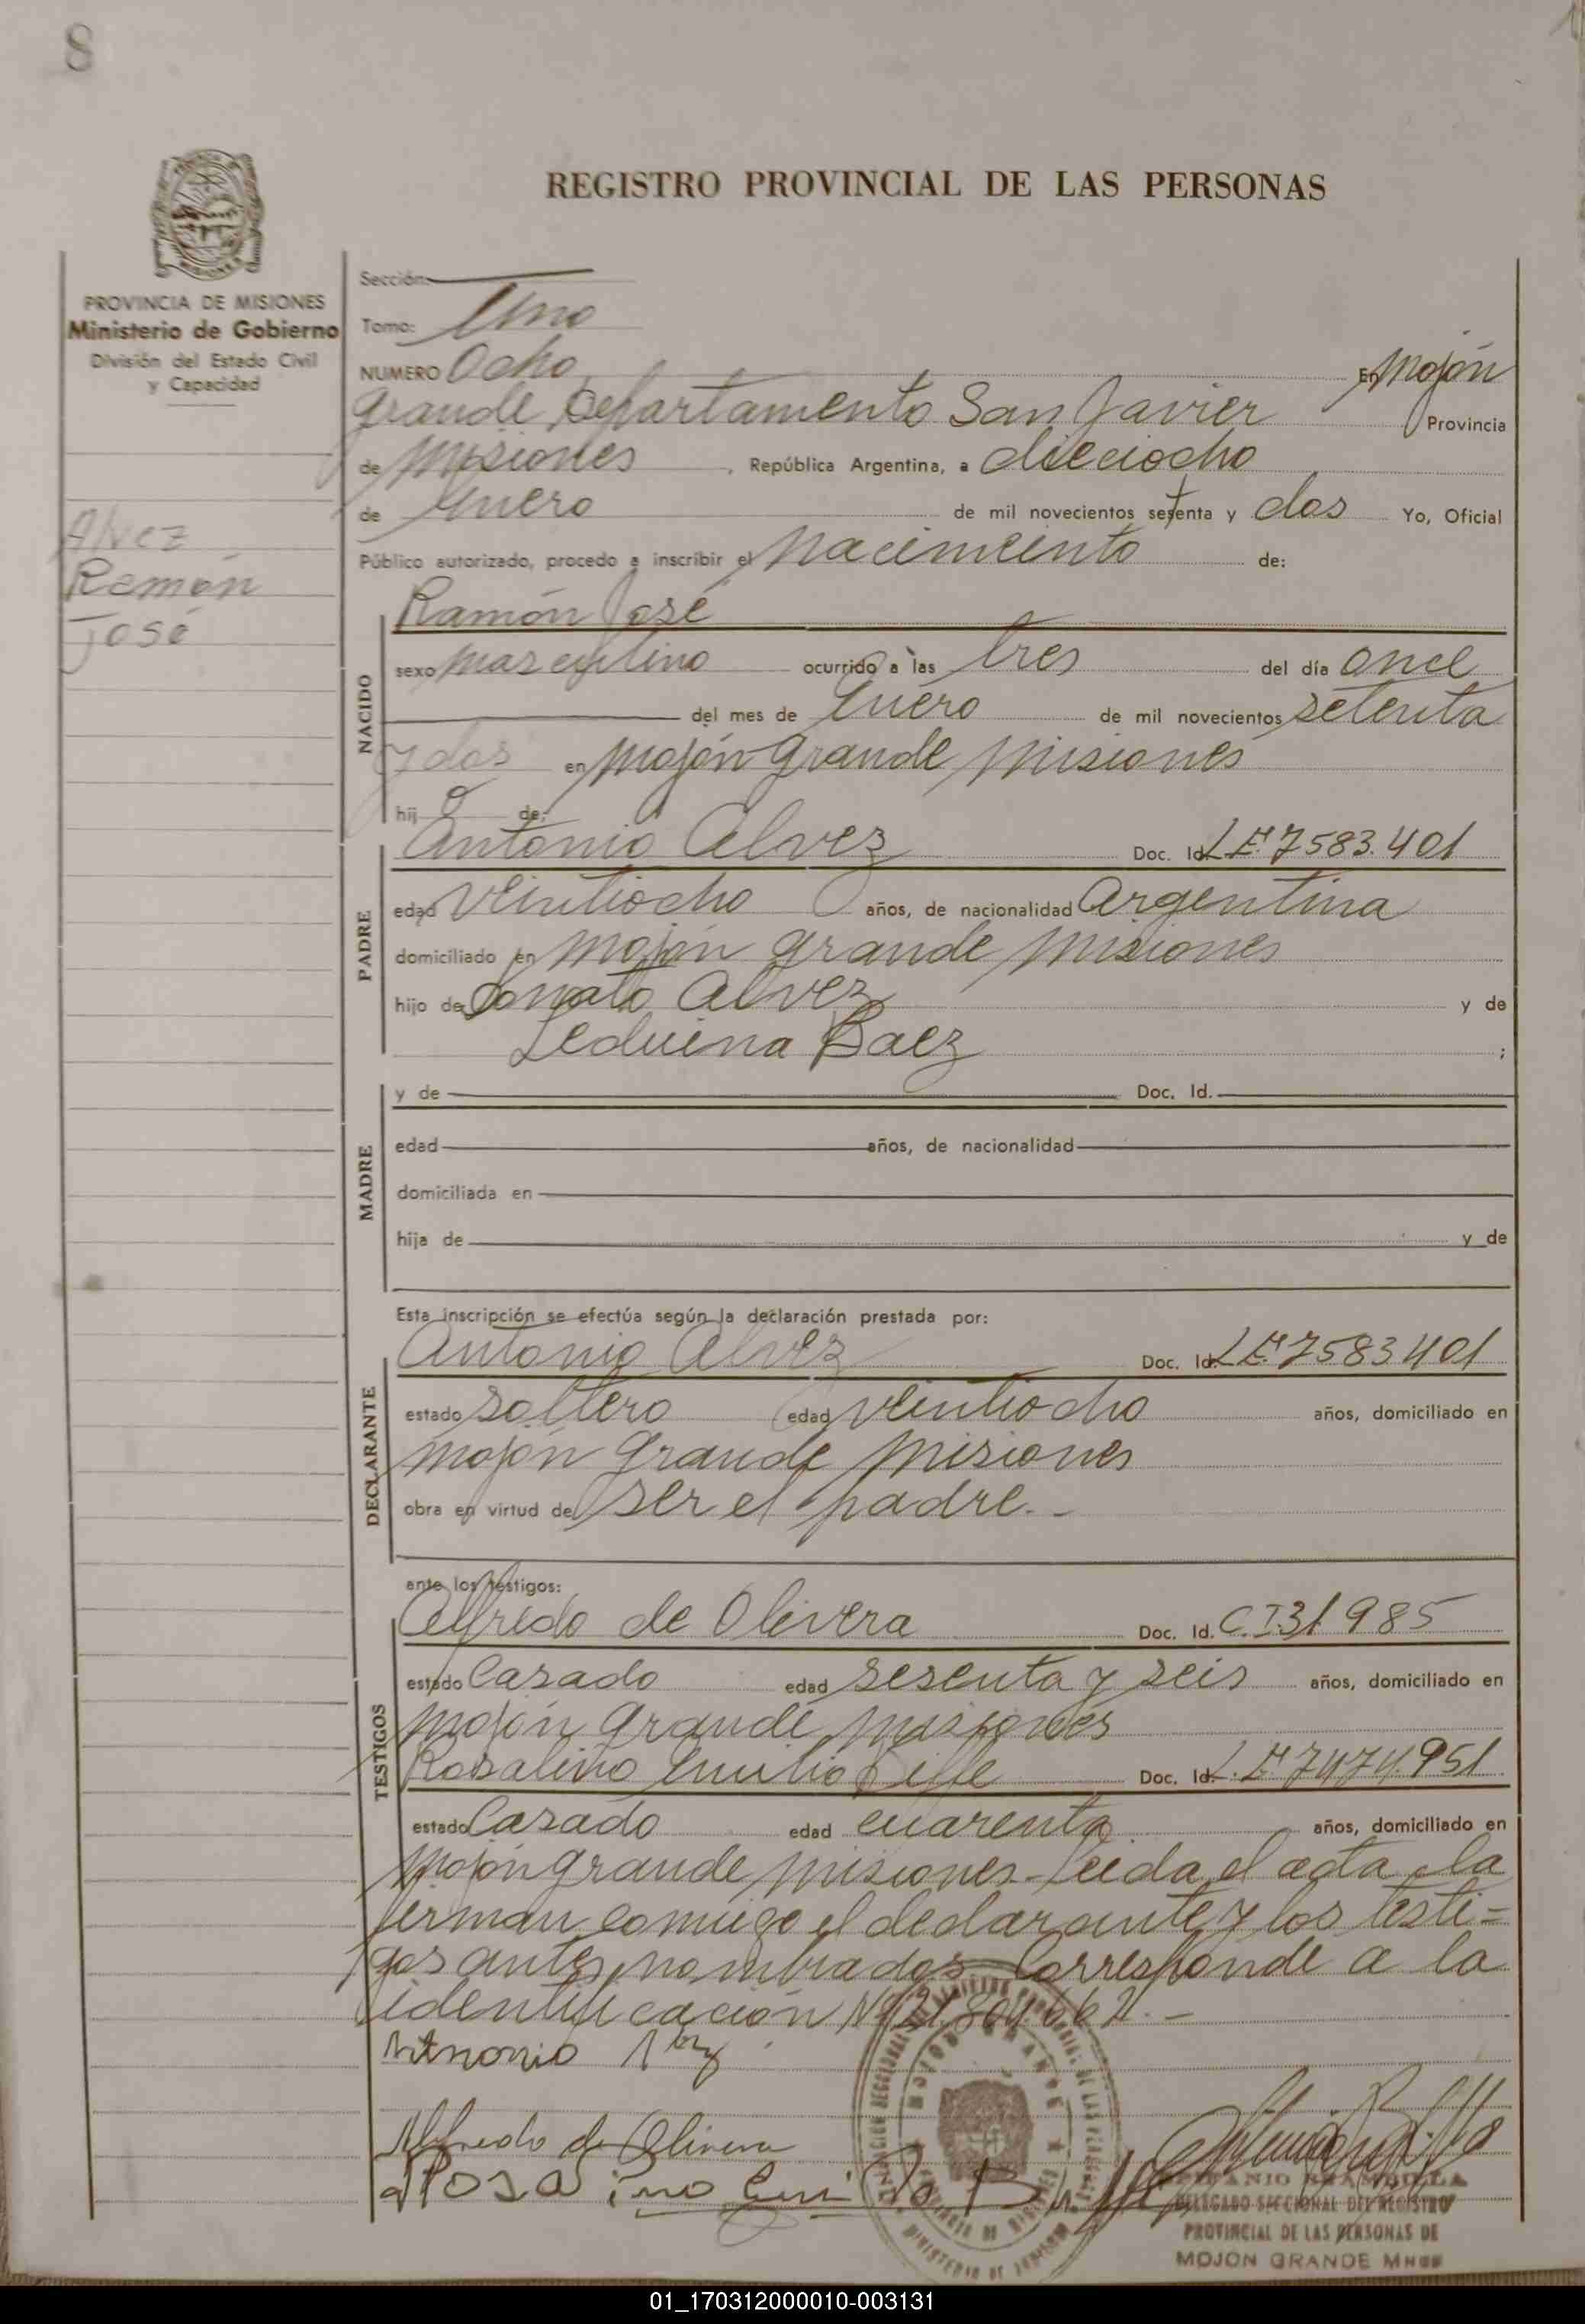 8
REGISTRO PROVINCIAL DE LAS PERSONAS
PROVINCIA DE MISIONES
Ministerio de Gobierno
División del Estado Civil
y Capacidad
Alvez
Ramón
José
Sección:
Tomo: Uno
NUMERO Ocho En Mojón
Grande Departamento San Javier Provincia
de Misiones, República Argentina, a dieciocho
de Enero de mil novecientos setenta y dos Yo, Oficial
Público autorizado, procedo a inscribir el Nacimiento de:
NACIDO
Ramón José
sexo masculino ocurrido a las tres del día once
del mes de Enero de mil novecientos setenta
y dos en Mojón Grande Misiones
hij o de:
PADRE
Antonio Alvez Doc. Id. L.E. 7583.401
edad veintiocho años, de nacionalidad Argentina
domiciliado en Mojón Grande Misiones
hijo de Donato Alvez y de
Leduina Baez ;
MADRE
y de Doc. Id.
edad años, de nacionalidad
domiciliada en
hija de y de
Esta inscripción se efectúa según la declaración prestada por:
DECLARANTE
Antonio Alvez Doc. Id. L.E. 7583401
estado soltero edad veintiocho años, domiciliado en
Mojón Grande Misiones
obra en virtud de ser el padre.-
ante los testigos:
TESTIGOS
Alfredo de Olivera Doc. Id. C.I.31985
estado Casado edad sesenta y seis años, domiciliado en
Mojón Grande Misiones
Rosalino Emilio Doc. Id. L.E. 7474.951
estado Casado edad cuarenta años, domiciliado en
Mojón Grande Misiones- Leida el acta la
firman comigo el declarante y los testi=
gos antes nombrados- Corresponde a la
identificación Nº
Antonio
Alfredo de Olivera
MOJON GRANDE
DELEGADO SECCIONAL DEL REGISTRO
PROVINCIAL DE LAS PERSONAS DE
MOJON GRANDE
01_170312000010-003131